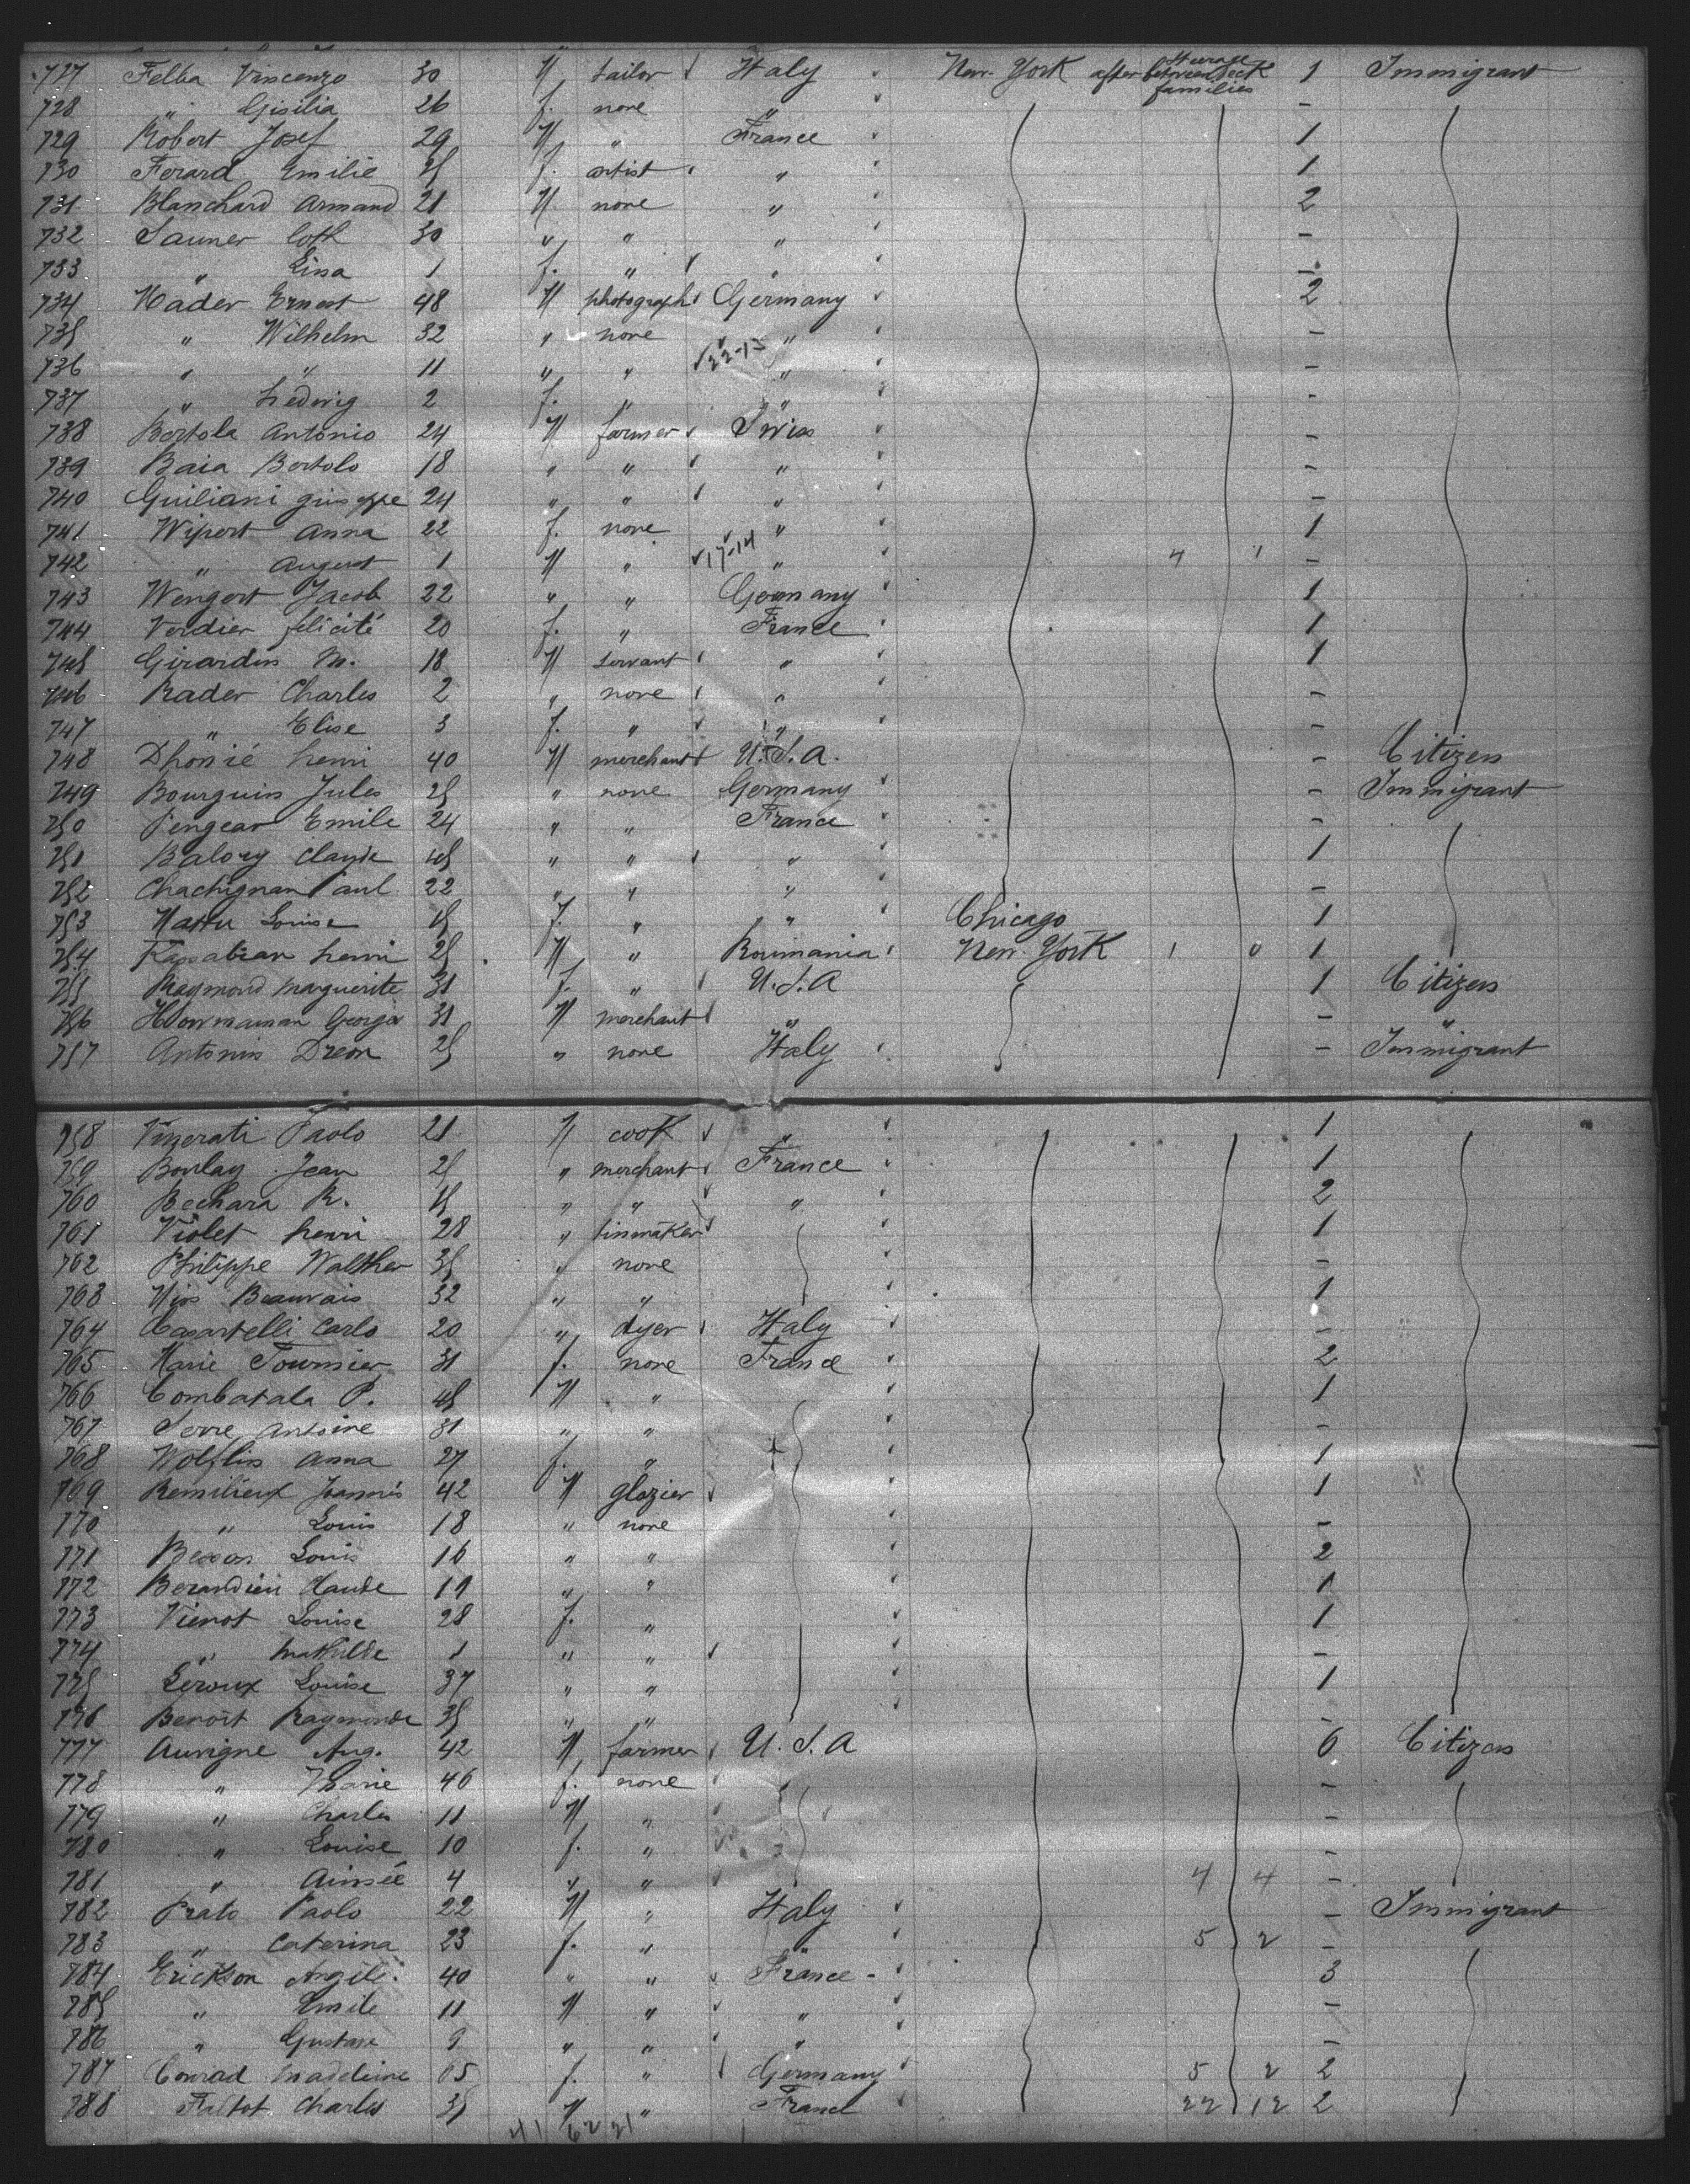 727 Felba Vincenzo 30 M tailor Italy New-York after steerage between deck families 1 Immigrant
728 " Gisilia 26 f. none " -
729 Robert Josef 29 M " France 1
730 Ferard Emilie 25 f. artist " 1
731 Blanchard Armand 21 M none " 2
732 Sauner Coth 30 " " " -
733 " Lina 1 f. " " -
734 Hader Ernest 48 M photograph Germany 2
735 " Wilhelm 32 " none " -
736 " " 11 " " 22-13 " -
737 " hedwig 2 f. " " -
738 Bertola Antonio 24 M farmer Swiss -
739 Baia Bortolo 18 " " " -
740 Guiliani giuseppe 24 " " " -
741 Wipert Anna 22 f. none " 1
742 " August 1 M " 17-14 " 4 1 -
743 Wengert Jacob 22 " " Germany 1
744 Verdier félicité 20 f. " France 1
745 Girardin M. 18 M servant " 1
746 Rader Charles 2 " none " -
747 " Elise 3 f. " " -
748 Dhonié henri 40 M merchant U.S.A. - Citizen
749 Bourguin Jules 25 " none Germany - Immigrant
750 Pengear Emile 24 " " France -
751 Balory Claude 45 " " " 1
752 Chachignan Paul 22 " " " -
753 Mattu Louise 15 f. " " Chicago 1
754 Kassabian henri 25 M " Roumania New-York 1 0 1
755 Raymond Marguerite 31 f. " U.S.A 1 Citizen
756 Howmaman George 31 M merchant " - "
757 Antonin Dreon 25 " none Italy - Immigrant
758 Vizerati Paolo 21 M cook " 1
759 Boulay Jean 25 " merchant France 1
760 Bechara R. 15 " " " 2
761 Violet henri 28 " tinmaker 1
762 Philippe Walther 35 " none -
763 Mios Beauvais 32 " " 1
764 Casartelli Carlo 20 " dyer Italy -
765 Marie Tournier 31 f. none France 2
766 Combatala P. 45 M " 1
767 Serre Antoine 31 " " -
768 Wolflin Anna 27 f. " 1
769 Remilieux Joannis 42 M glazier 1
770 " Louis 18 " none -
771 Besson Louis 16 " " 2
772 Berandieu Claude 19 " " 1
773 Vienot Louise 28 f. " 1
774 " Mathilde 1 " " -
775 Leroux Louise 37 " " 1
776 Benoit Raymonde 35 " " -
777 Auvigne Aug. 42 M farmer U.S.A 6 Citizen
778 " Marie 46 f. none -
779 " Charles 11 M " -
780 " Louise 10 f. " -
781 " Aimée 4 " " 4 4 -
782 Prato Paolo 22 M " Italy - Immigrant
783 " Caterina 23 f. " " 5 2 -
784 Erickson Angéle. 40 " " France - 3
785 " Emile 11 M " " -
786 " Gustave 9 " " " -
787 Conrad Madeleine 65 f. " Germany 5 2 2
788 Faitot Charles 35 M " France 22 12 2
41 62 21